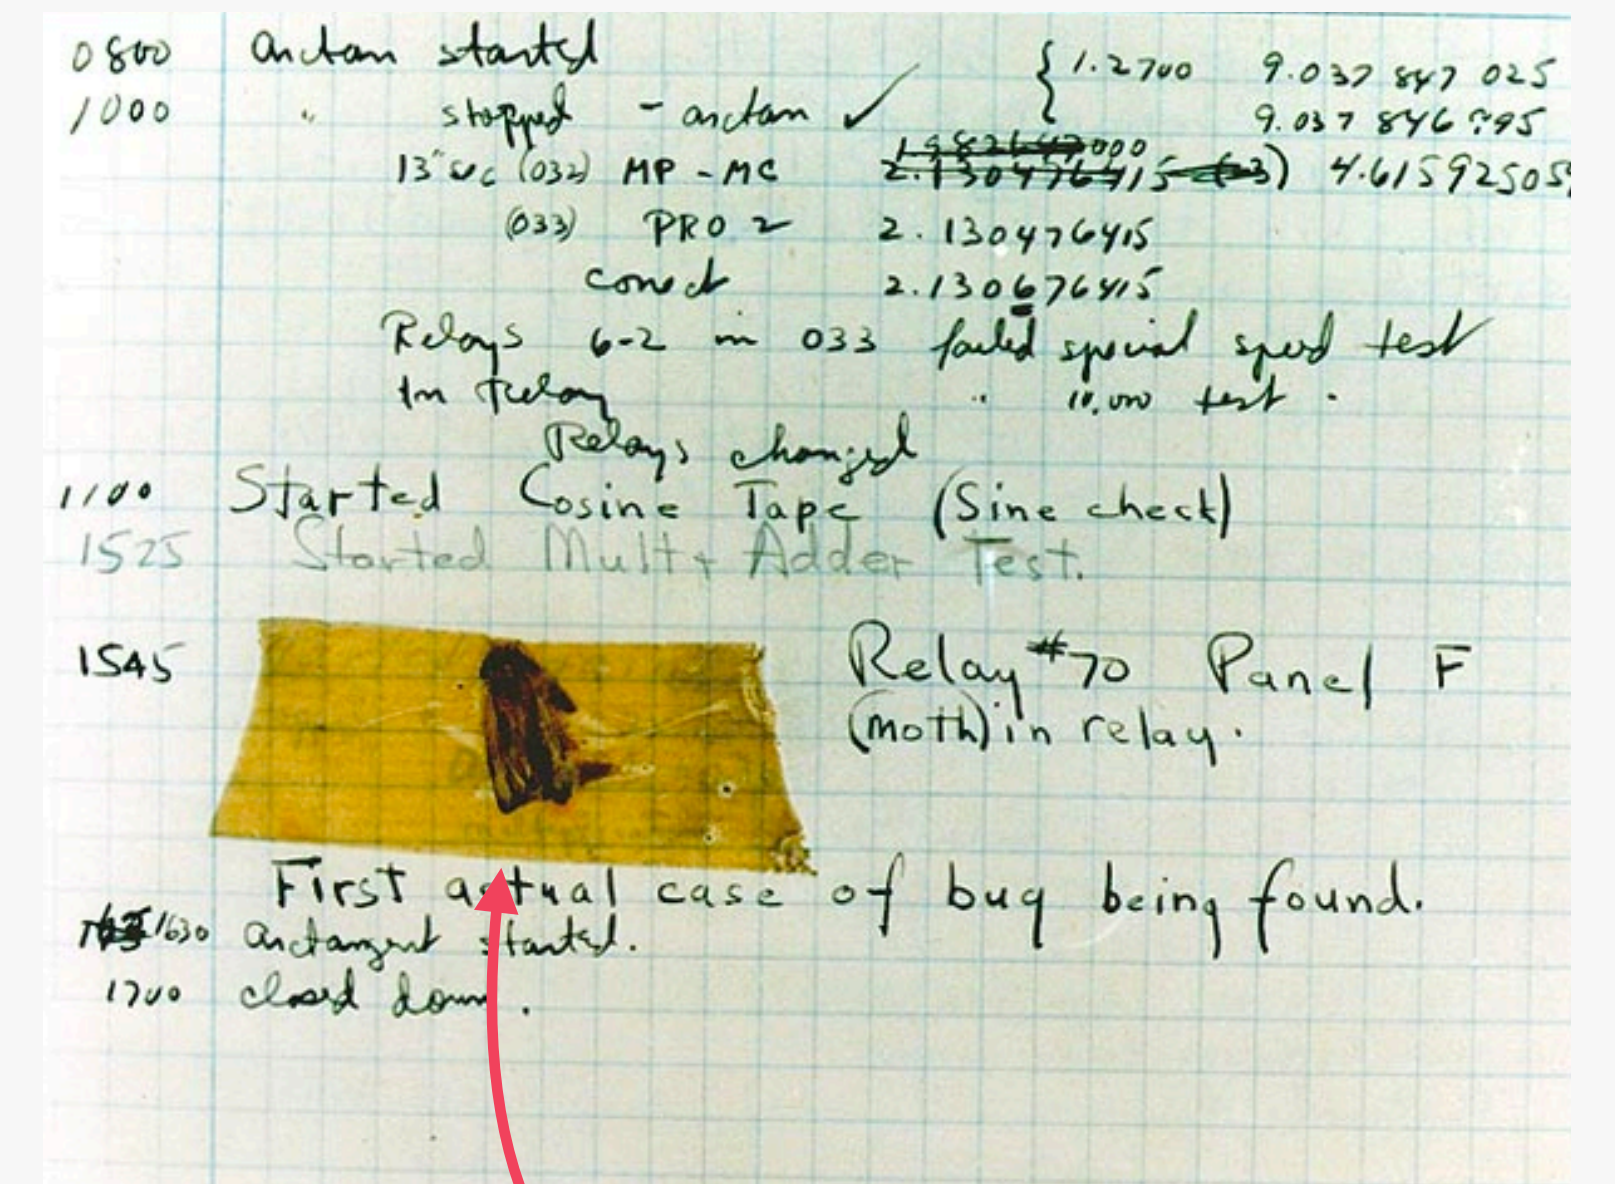 0800 Arctan started { 1.2700 9.037 847 025
1000 " stopped - arctan ✓ 9.037 846 995
13" sec (032) MP - MC 2.130476415 (-3) 4.615925059
(033) PRO 2 2.130476415
correct 2.130676415
Relays 6-2 in 033 failed special speed test
In Relay " 10,000 test .
Relays changed
1100 Started Cosine Tape (Sine check)
1525 Started Mult + Adder Test.
1545 Relay #70 Panel F
(moth) in relay.
First actual case of bug being found.
1630 Arctangent started.
1700 closed down.